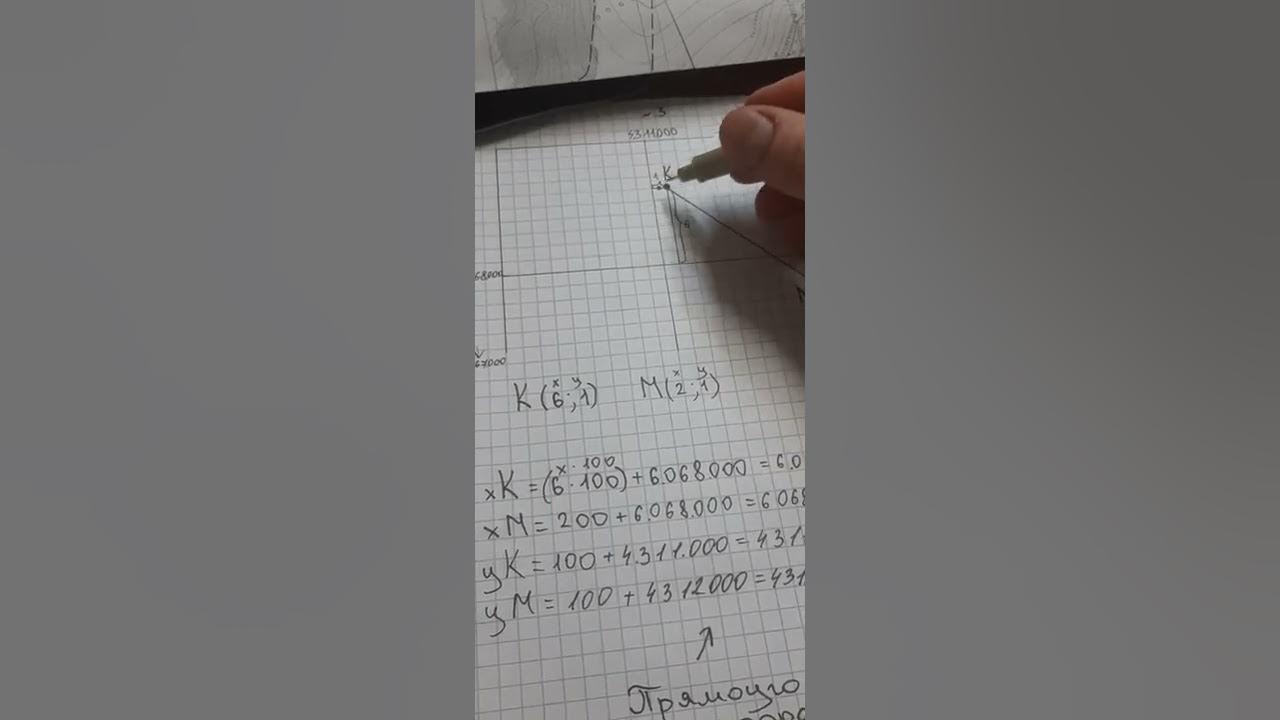 4311000
K
68000
67000
x y x y
K (6;1) M (2;1)
x · 100
xK = (6 · 100) + 6.068.000 = 6.0
xM = 200 + 6.068.000 = 6068
yK = 100 + 4.311.000 = 431
yM = 100 + 4312000 = 431
Прямоуго